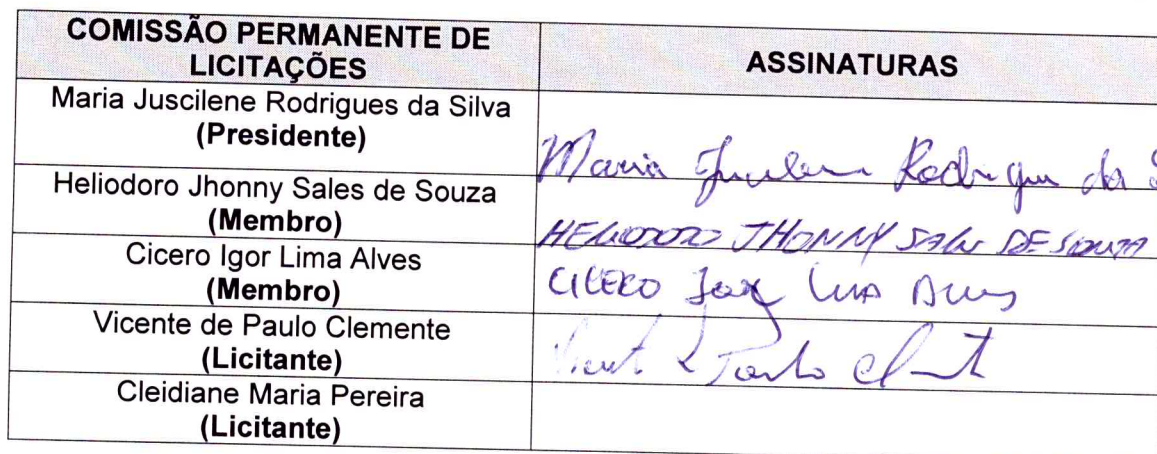 COMISSÃO PERMANENTE DE
LICITAÇÕES
ASSINATURAS
Maria Juscilene Rodrigues da Silva
(Presidente)
Maria Juscilene Rodrigues da S
Heliodoro Jhonny Sales de Souza
(Membro)
HELIODORO JHONNY SALES DE SOUZA
Cicero Igor Lima Alves
(Membro)
CICERO IGOR LIMA ALVES
Vicente de Paulo Clemente
(Licitante)
Vicente de Paulo Clemente
Cleidiane Maria Pereira
(Licitante)